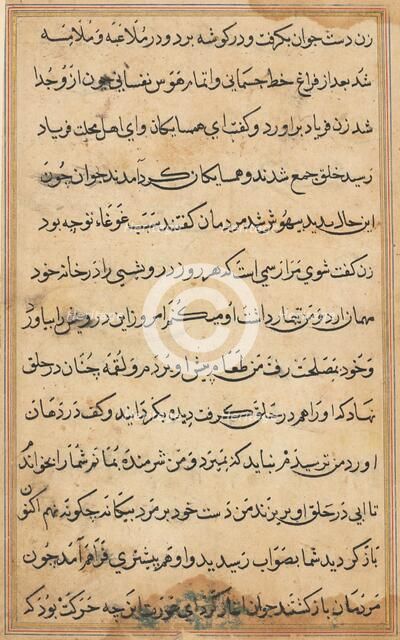 زن دست جوان بکرفت و در کوشه برد و در ملاعبه و ملامسه
شد بعد از فراغ حظ جسمانی و اتمام هوس نفسانی چون از و جدا
شد زن فریاد براورد و کفت ای همسایکان وای اهل محلت فریاد
رسید خلق جمع شدند و همسایکان کرد آمدند جوان چون
این حال بدید بیهوش شد مردمان کفتند سبب غوغاء تو چه بود
زن کفت شوی مرا رسمی است که هر روز درویشی را در خانه خود
مهمان ارد و من تیمار داشت او میکنم امروز این درویش را بیاورد
و خود بمصلحت رفت من طعام پیش او بردم و لقمه چنان در حلق
نهاد که او را هم در حلق کرفت دیده بکردانید و کف در دهان
اورد من ترسیدم نباید که بمیرد و من شرمنده بمانم شما را بخواندم
تا ابی در حلق او بریزند من دست خود بر مرد بیکانه چکونه نهم اکنون
باز کردید شما بصواب رسیدید و او هم بهتری فراهم آمد چون
مردمان باز کشتند جوان اغاز کرد ای عورت این چه حرکت بود که